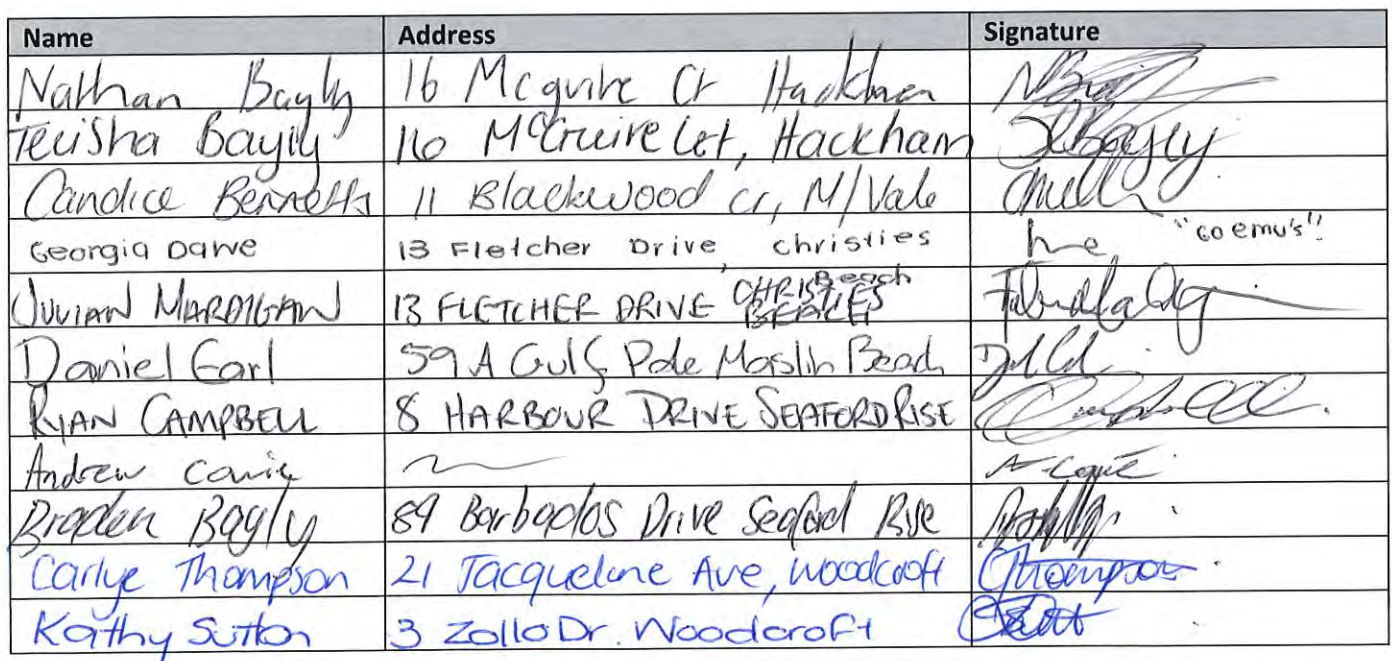 Name Address Signature
Nathan Bayly 16 Mcguire Cr Hackham
Teeisha Bayly 16 McGuire Cct, Hackham Bayly
Candice Bennetts 11 Blackwood Cr, M/Vale
Georgia Dawe 13 Fletcher Drive, Christies "Go emu's"!
Beach
JULIAN MARDIGAN 13 FLETCHER DRIVE
Daniel Earl 59A Gulf Pde Maslin Beach
RYAN CAMPBELL 8 HARBOUR DRIVE SEAFORD RISE Campbell
Andrew Cowie
Braden Bayly 89 Barbados Drive Seaford Rise
Carlye Thompson 21 Jacqueline Ave, Woodcroft CThompson
Kathy Sutton 3 Zollo Dr. Woodcroft